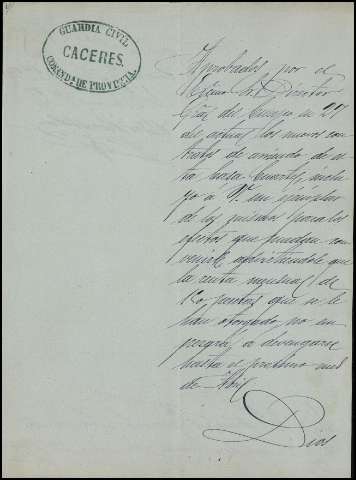 GUARDIA CIVIL
CACERES.
COMANDª DE PROVINCIA.
Aprobados por el
Excmo Sr. Director
Gral del Cuerpo en 27
del actual los nuevos con
tratos de arriendo de es
ta Casa Cuartel, inclu
yo á V. un ejemplar
de los mismos para los
efectos que puedan con
venirle advirtiendole que
la renta mensual de
pesetas que se le
han otorgado no em
pezará a devengarse
hasta el proximo mes
de Abril
Dios